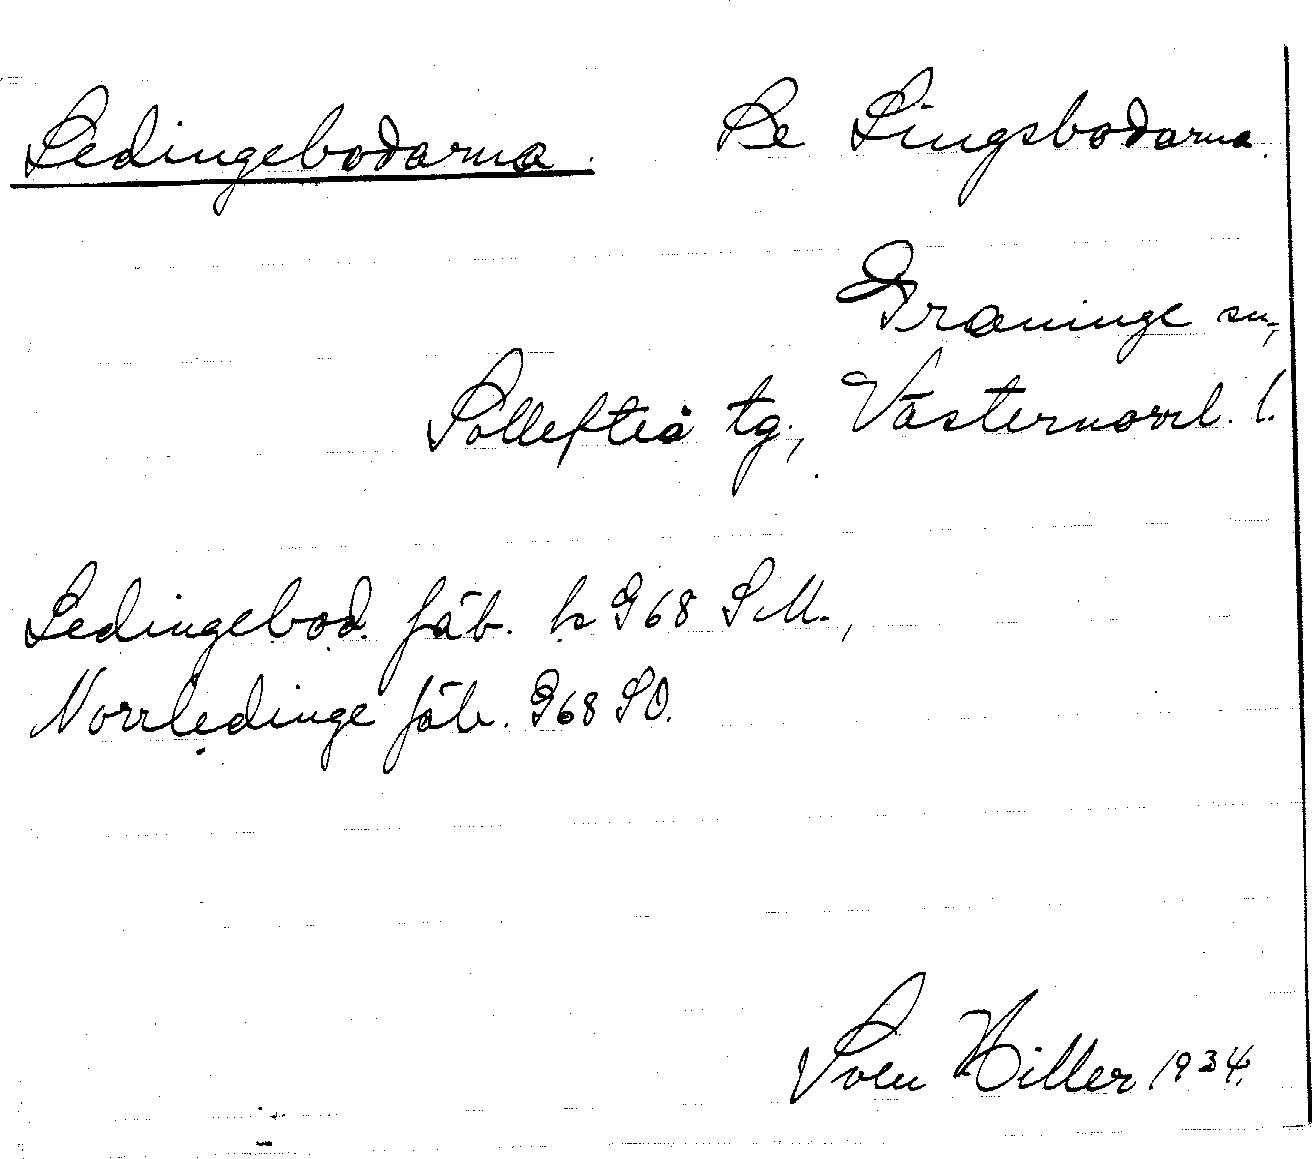 Ledingebodarna. Se Lingsbodarna.
Graninge sn,
Sollefteå tg., Västernorrl. l.
Ledingebod. fäb. k G68 SM.,
Norrledinge fäb. G68 SO.
Sven Hiller 1934.